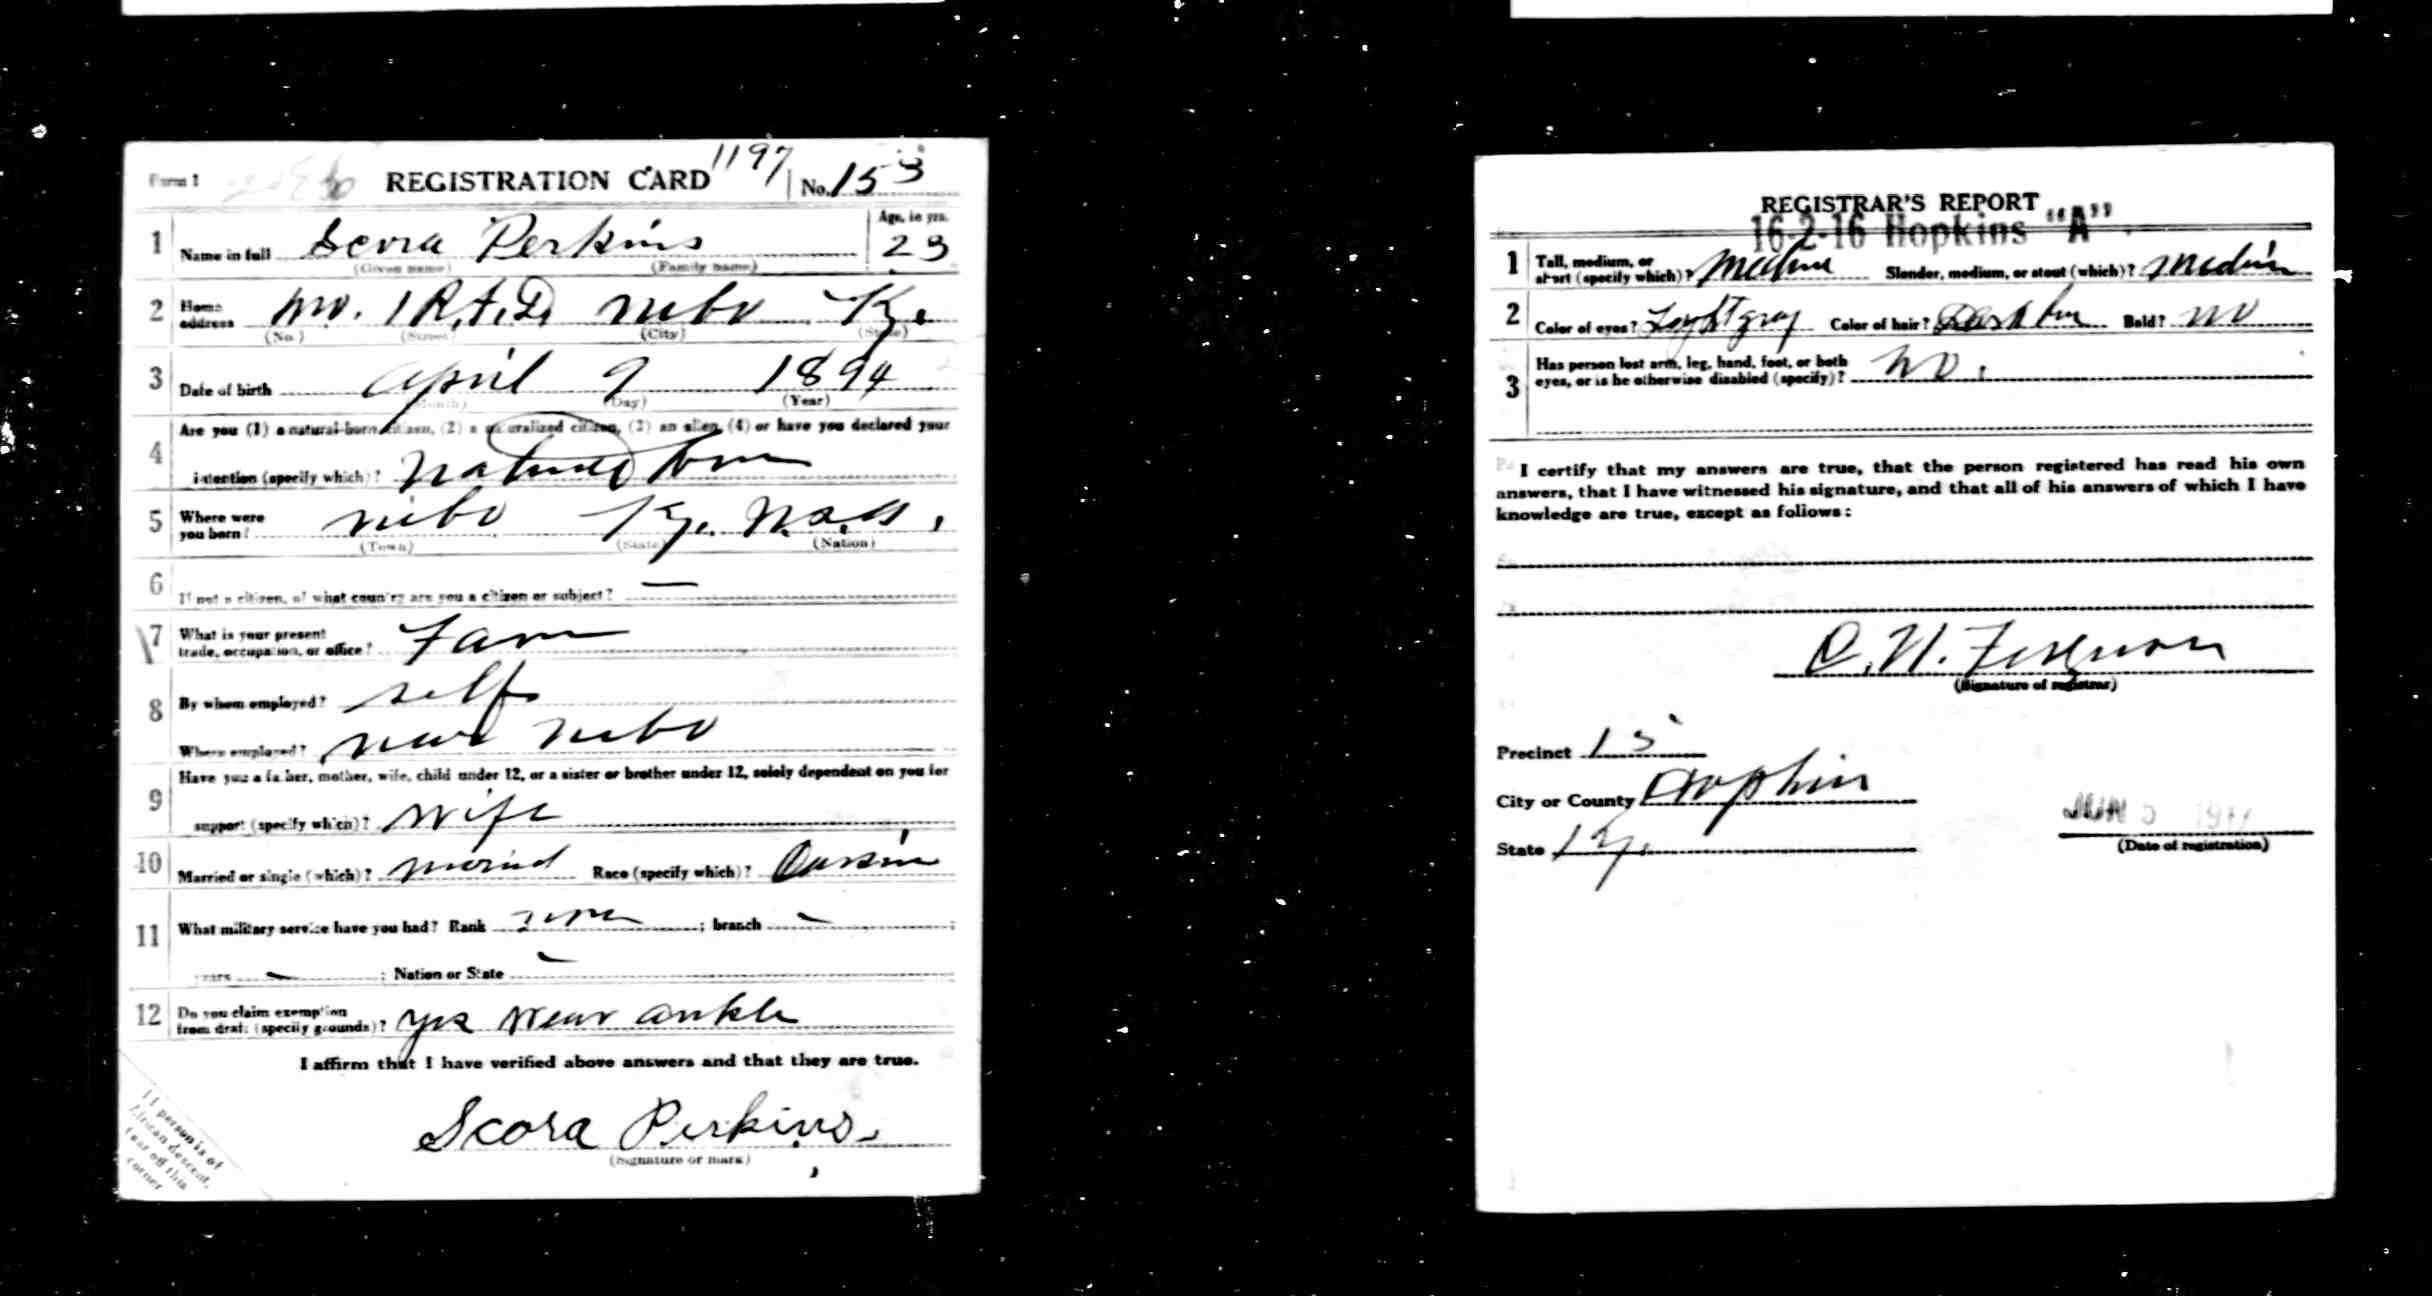 Form 1 REGISTRATION CARD 1197 No. 153
1 Name in full Scora Perkins Age, in yrs. 23
(Given name) (Family name)
2 Home address No. 1 R.F.D. Nebo Ky.
(No.) (Street) (City) (State)
3 Date of birth April 9 1894
(Month) (Day) (Year)
4 Are you (1) a natural-born citizen, (2) a naturalized citizen, (3) an alien, (4) or have you declared your
intention (specify which)? Natural born
5 Where were you born? Nebo Ky.
(Town) (State) (Nation)
6 If not a citizen, of what country are you a citizen or subject? —
7 What is your present
trade, occupation, or office? Farm
8 By whom employed? self
Where employed? near Nebo
9 Have you a father, mother, wife, child under 12, or a sister or brother under 12, solely dependent on you for
support (specify which)? wife
10 Married or single (which)? Race (specify which)?
11 What military service have you had? Rank none ; branch — ;
years — ; Nation or State —
12 Do you claim exemption
from draft (specify grounds)? yes ankle
I affirm that I have verified above answers and that they are true.
Scora Perkins.
(Signature or mark)
If person is of
African descent,
tear off this
corner
REGISTRAR'S REPORT
16-2-16 Hopkins "A"
1 Tall, medium, or
short (specify which)? Medium Slender, medium, or stout (which)? Medium
2 Color of eyes? Light gray Color of hair? Dark Bald? no
3 Has person lost arm, leg, hand, foot, or both
eyes, or is he otherwise disabled (specify)? No.
I certify that my answers are true, that the person registered has read his own
answers, that I have witnessed his signature, and that all of his answers of which I have
knowledge are true, except as follows:
(Signature of registrar)
Precinct 15
City or County Hopkins
State Ky.
JUN 5 1917
(Date of registration)